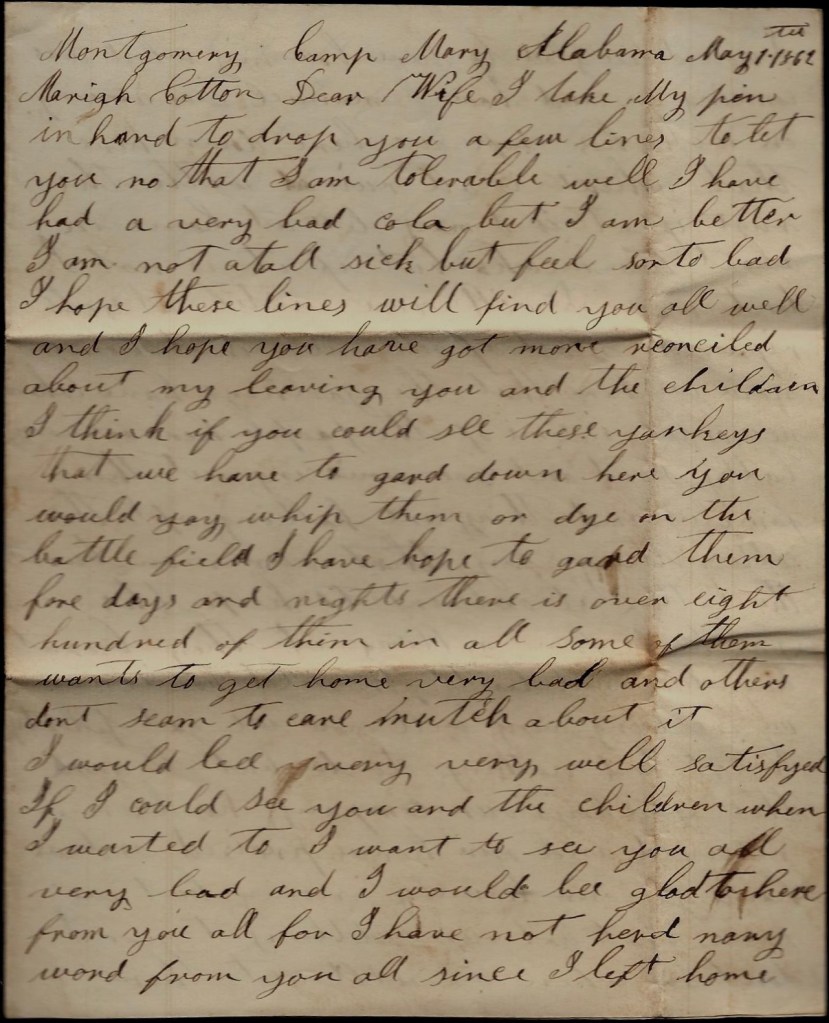 Montgomery Camp Mary Alabama May 1th 1862
Marigh Cotton Dear Wife I take My pen
in hand to drop you a few lines to let
you no that I am tolerable well I have
had a very bad cola but I am better
I am not atall sick but feel sorto bad
I hope these lines will find you all well
and I hope you have got more reonciled
about my leaving you and the children
I think if you could see these yankeys
that we have to gard down here you
would say whip them or dye on the
battle field I have hope to gard them
fore days and nights there is over eight
hundred of them in all some of them
wants to get home very bad and others
dont seam to care mutch about it
I would bee very very well satisfyed
If I could see you and the children when
I wanted to I want to see you all
very bad and I would bee glad to here
from you all for I have not herd nary
word from you all since I left home